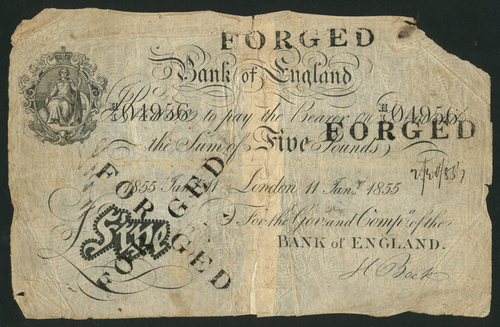 FORGED
Bank of England
H/A 04956 I Promise to pay the Bearer on H/A 04956
FORGED
the Sum of Five Pounds
1855 Jany. 11 London 11 Jany. 1855
FORGED
For the Govr. and Compa. of the
Five
BANK of ENGLAND.
FORGED